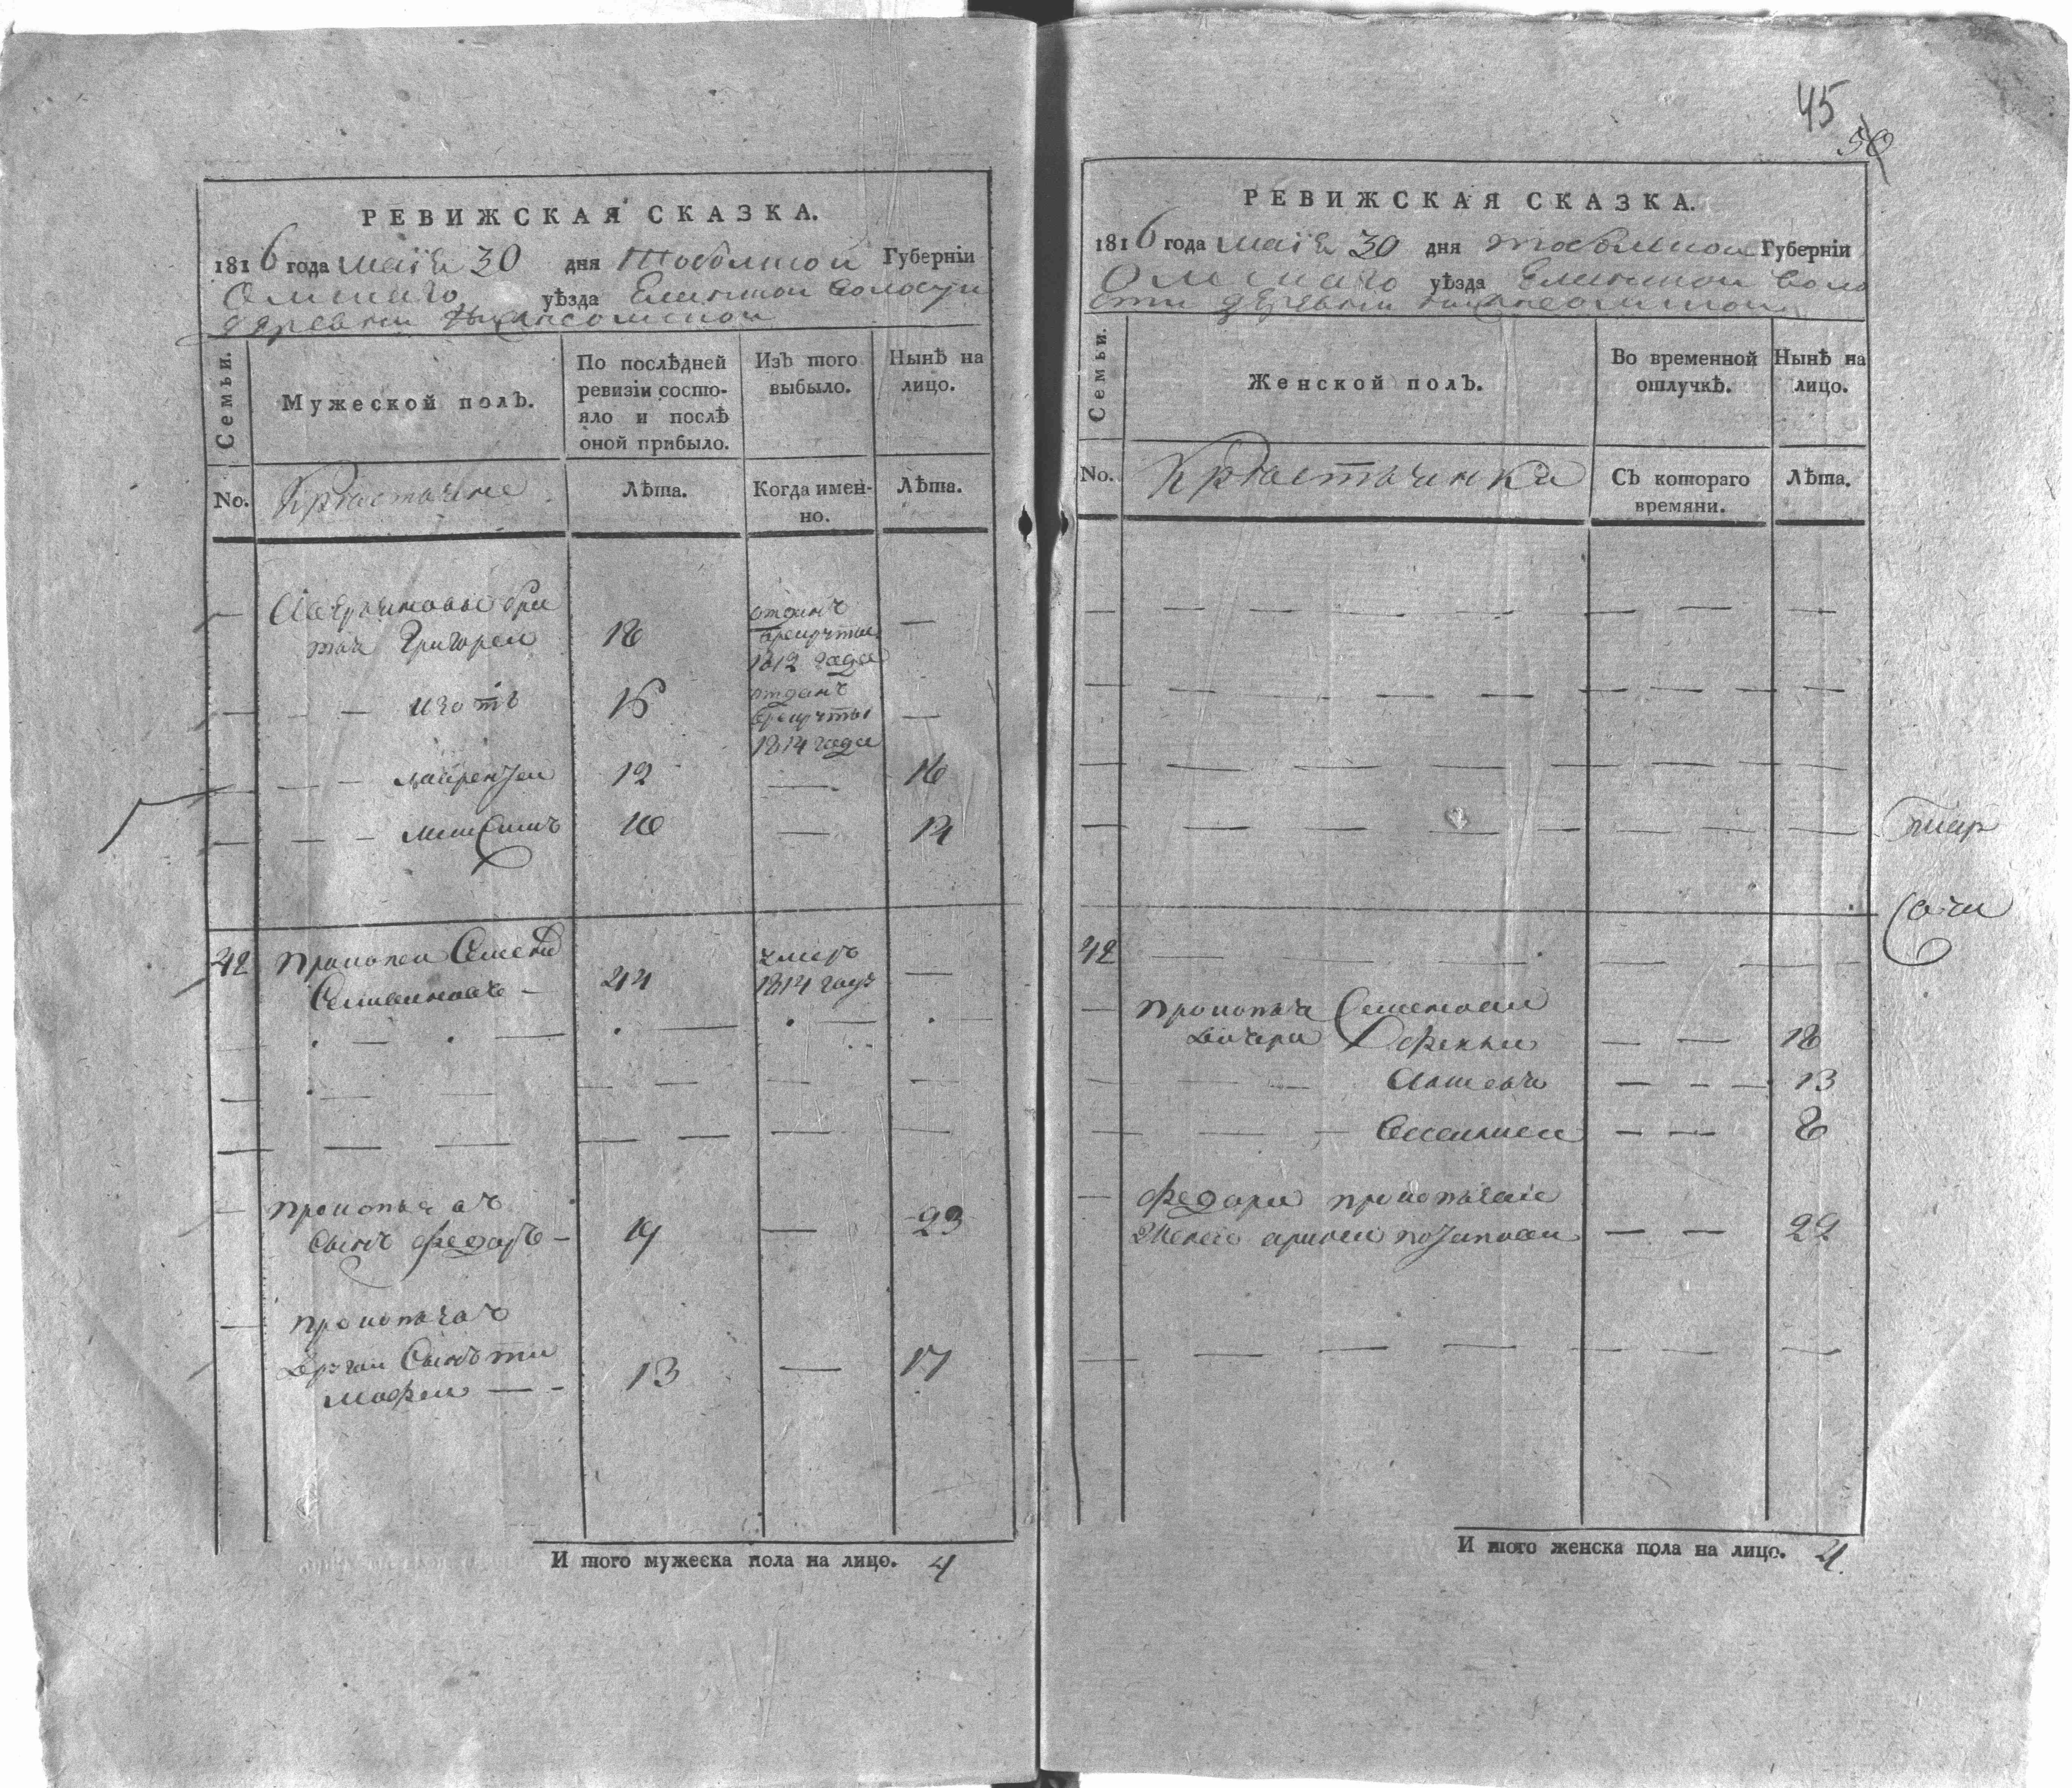 45
50
РЕВИЖСКАЯ СКАЗКА.
1816 года маія 30 дня Тобольской Губерніи
Омскаго уѣзда Еланской волости
деревни
Семьи.
Мужеской полъ.
По послѣдней ревизіи состо-
яло и послѣ
оной прибыло.
Изъ того
выбыло.
Нынѣ на
лицо.
No.
Крестьяне
Лѣта.
Когда имен-
но.
Лѣта.
бра
тья Григорей 18 отданъ
в рекруты
1812 года
Изотъ 16 отданъ
в рекруты
1814 года
Лаврентей 12 16
Максимъ 10 14
42 Прокопей Семеновъ
44 умеръ
1814 году
Прокопьевъ
сынъ Федоръ 19 23
Прокопьевъ
другой сынъ Ти
мофей 13 17
И того мужеска пола на лицо. 4
РЕВИЖСКАЯ СКАЗКА.
1816 года маія 30 дня Тобольской Губерніи
Омскаго уѣзда Еланской воло
сти деревни
Семьи.
Женской полъ.
Во временной
отлучкѣ.
Нынѣ на
лицо.
No.
Крестьянка
Съ котораго
времяни.
Лѣта.
42
Прокопья Семенова
дочери Офекья 18
13
8
Федора Прокопьева
жена Арина Потапова 22
И того женска пола на лицо. 4